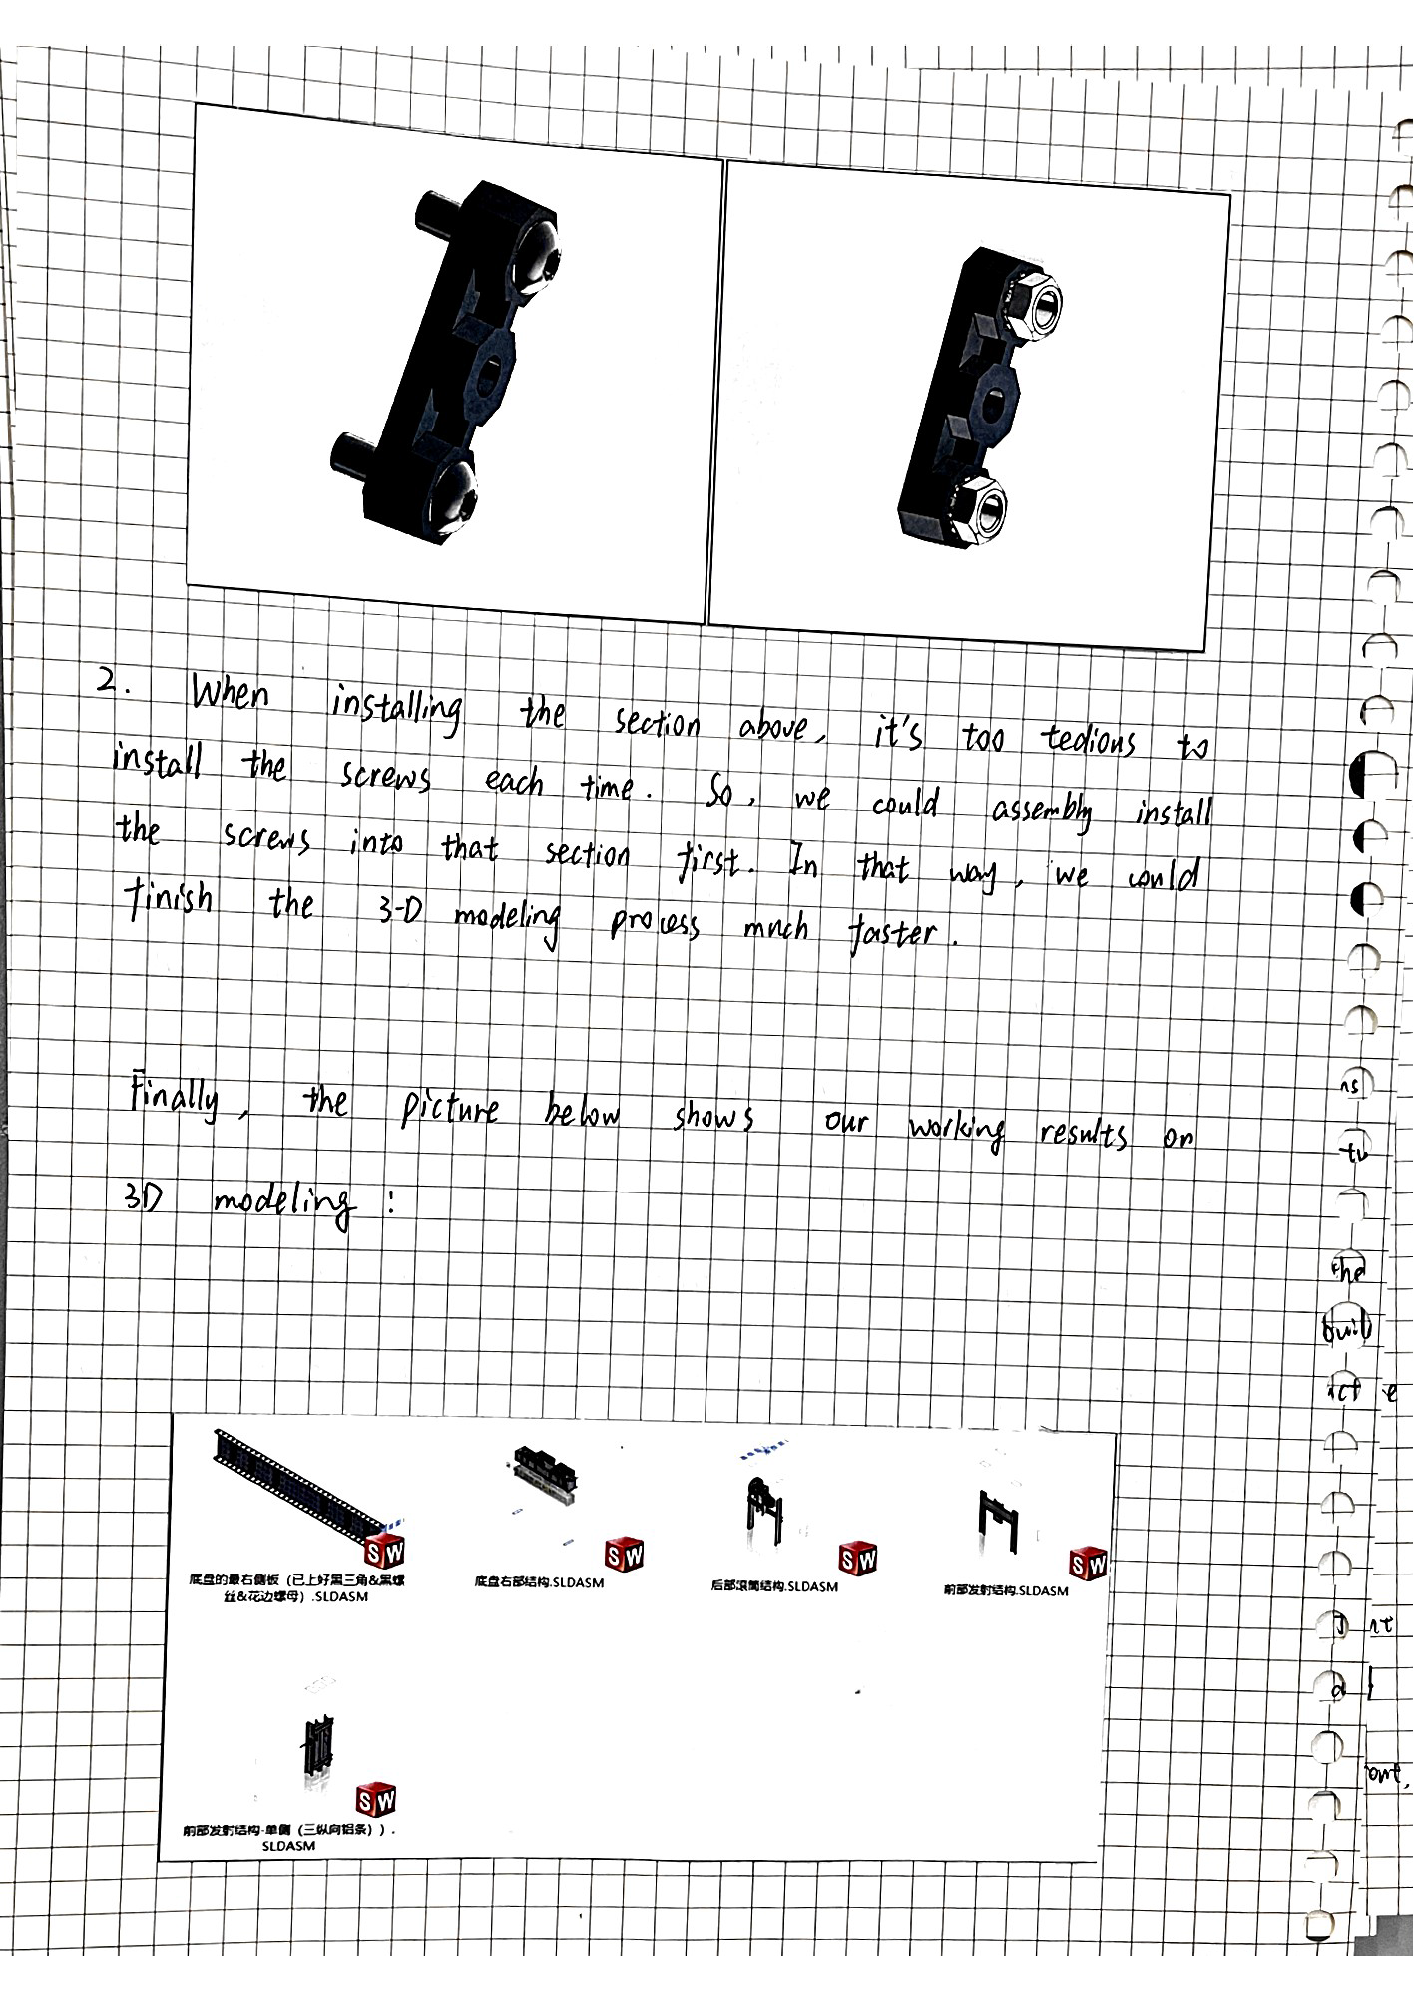 2. When installing the section above, it's too tedions to
install the screws each time. So, we could assembly install
the screws into that section first. In that way, we could
finish the 3-D modeling process much faster.
Finally, the picture below shows our working results on
3D modeling:
SW
SW
SW
SW
底盘的最右侧板（已上好黑三角&黑螺
丝&花边螺母）.SLDASM
底盘右部结构.SLDASM
后部滚筒结构.SLDASM
前部发射结构.SLDASM
SW
前部发射结构-单侧（三纵向铝条））.
SLDASM
ns
the